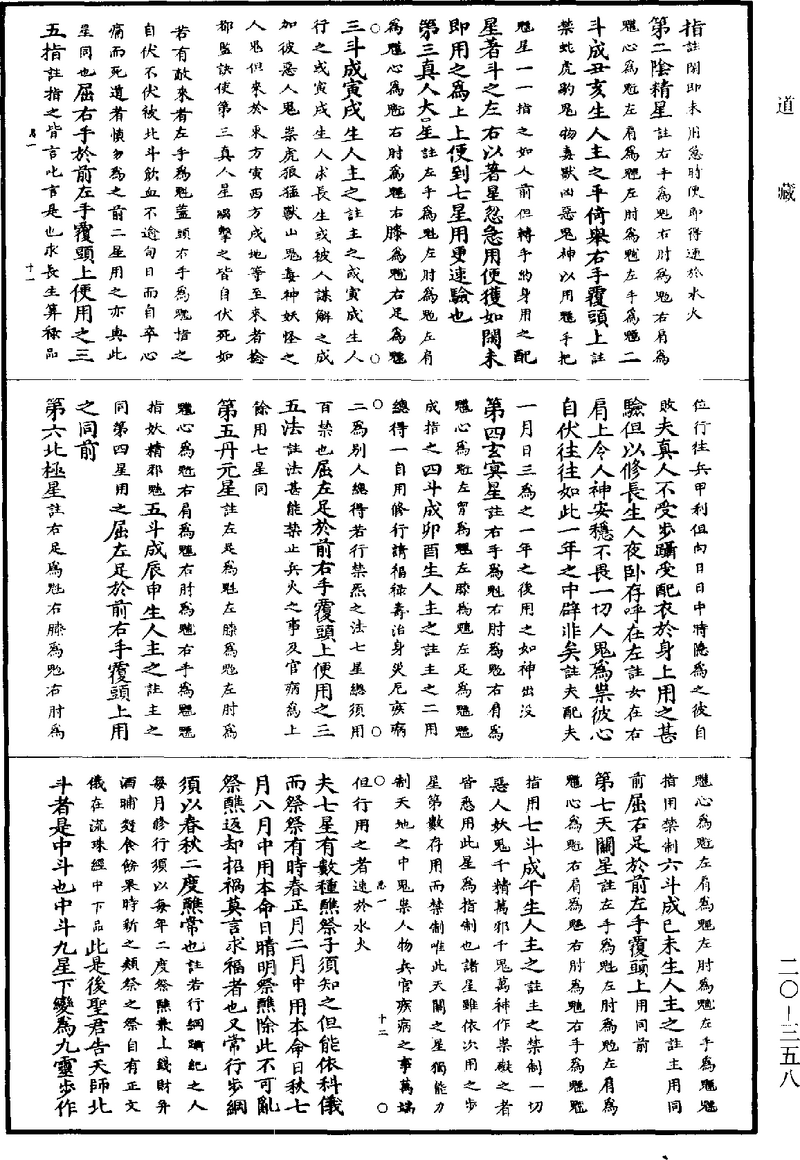 道藏
指註閑即未用急時便即得速於水火
第二陰精星註右手為魁右肘為魁右肩為
魁心為魁左肩為魁左肘為魁左手為魁二
斗成丑亥生人主之平倚舉右手覆頭上註
禁蛇虎豹鬼物毒獸凶惡鬼神以用魁手把
魁星一一指之如人前但轉手約身用之配
星著斗之左右以著星忽急用便獲如閑未
即用之為上上便到七星用更速驗也
第三真人大星註左手為魁左肘為魁左肩
為魁心為魁右肘為魁右膝為魁右足為魁
三斗成寅戌生人主之註主之或寅戌生人
行之或寅戌生人求長生或被人謀解之成
加彼惡人鬼祟虎狼猛獸山鬼毒神妖怪之
人鬼但來於東方寅西方戌地等至來者捻
都監訣使第三真人星魁擊之皆自伏死如
若有敢來者左手為魁蓋頭右手為魁指之
自伏不伏彼北斗飲血不逾旬日而自卒心
痛而死道者慎勿為之前二星用之亦與此
星同也屈右手於前左手覆頭上便用之三
五指註指之皆言叱言是也求長生算祿品
位行往兵甲利但向日日中時隱為之彼自
敗夫真人不受步躡受配衣於身上用之甚
驗但以修長生人夜卧存呼在左註女在右
肩上令人神安穩不畏一切人鬼為祟彼心
自伏往往如此一年之中辟非矣註夫配夫
一月日三為之一年之後用之如神出沒
第四玄冥星註右手為魁右肘為魁右肩為
魁心為魁左胷為魁左膝為魁左足為魁魁
成指之四斗成卯酉生人主之註主之二用
總得一自用修行請福祿壽治身災厄疾病
二為別人總得若行禁炁之法七星總須用
百禁也屈左足於前右手覆頭上便用之三
五法註法甚能禁止兵火之事及官病為上
餘用七星同
第五丹元星註左足為魁左膝為魁左肘為
魁心為魁右肩為魁右肘為魁右手為魁魁
指妖精邪魅五斗成辰申生人主之註主之
同第四星用之屈左足於前右手覆頭上用
之同前
第六北極星註右足為魁右膝為魁右肘為
魁心為魁左肩為魁左肘為魁左手為魁魁
指用禁制六斗成巳未生人主之註主用同
前屈右足於前左手覆頭上用同前
第七天關星註左手為魁左肘為魁左肩為
魁心為魁右肩為魁右肘為魁右手為魁魁
指用七斗成午生人主之註主之禁制一切
惡人妖鬼千精萬邪千鬼萬神作祟礙之者
皆悉用此星為指制也諸星雖依次用之步
星第數存用而禁制唯此天關之星獨能力
制天地之中鬼祟人物兵官疾病之事萬端
但行用之者速於水火
夫七星有數種醮祭子須知之但能依科儀
而祭祭有時春正月二月中用本命日秋七
月八月中用本命日晴明祭醮除此不可亂
祭醮返却招禍莫言求福者也又常行步綱
須以春秋二度醮常也註若行綱躡紀之人
每月修行須以每年二度祭醮兼上錢財并
酒脯麵食餅果時新之類祭之祭自有正文
儀在流珠經中下品此是後聖君告天師北
斗者是中斗也中斗九星下變為九靈步作
二〇－三五八